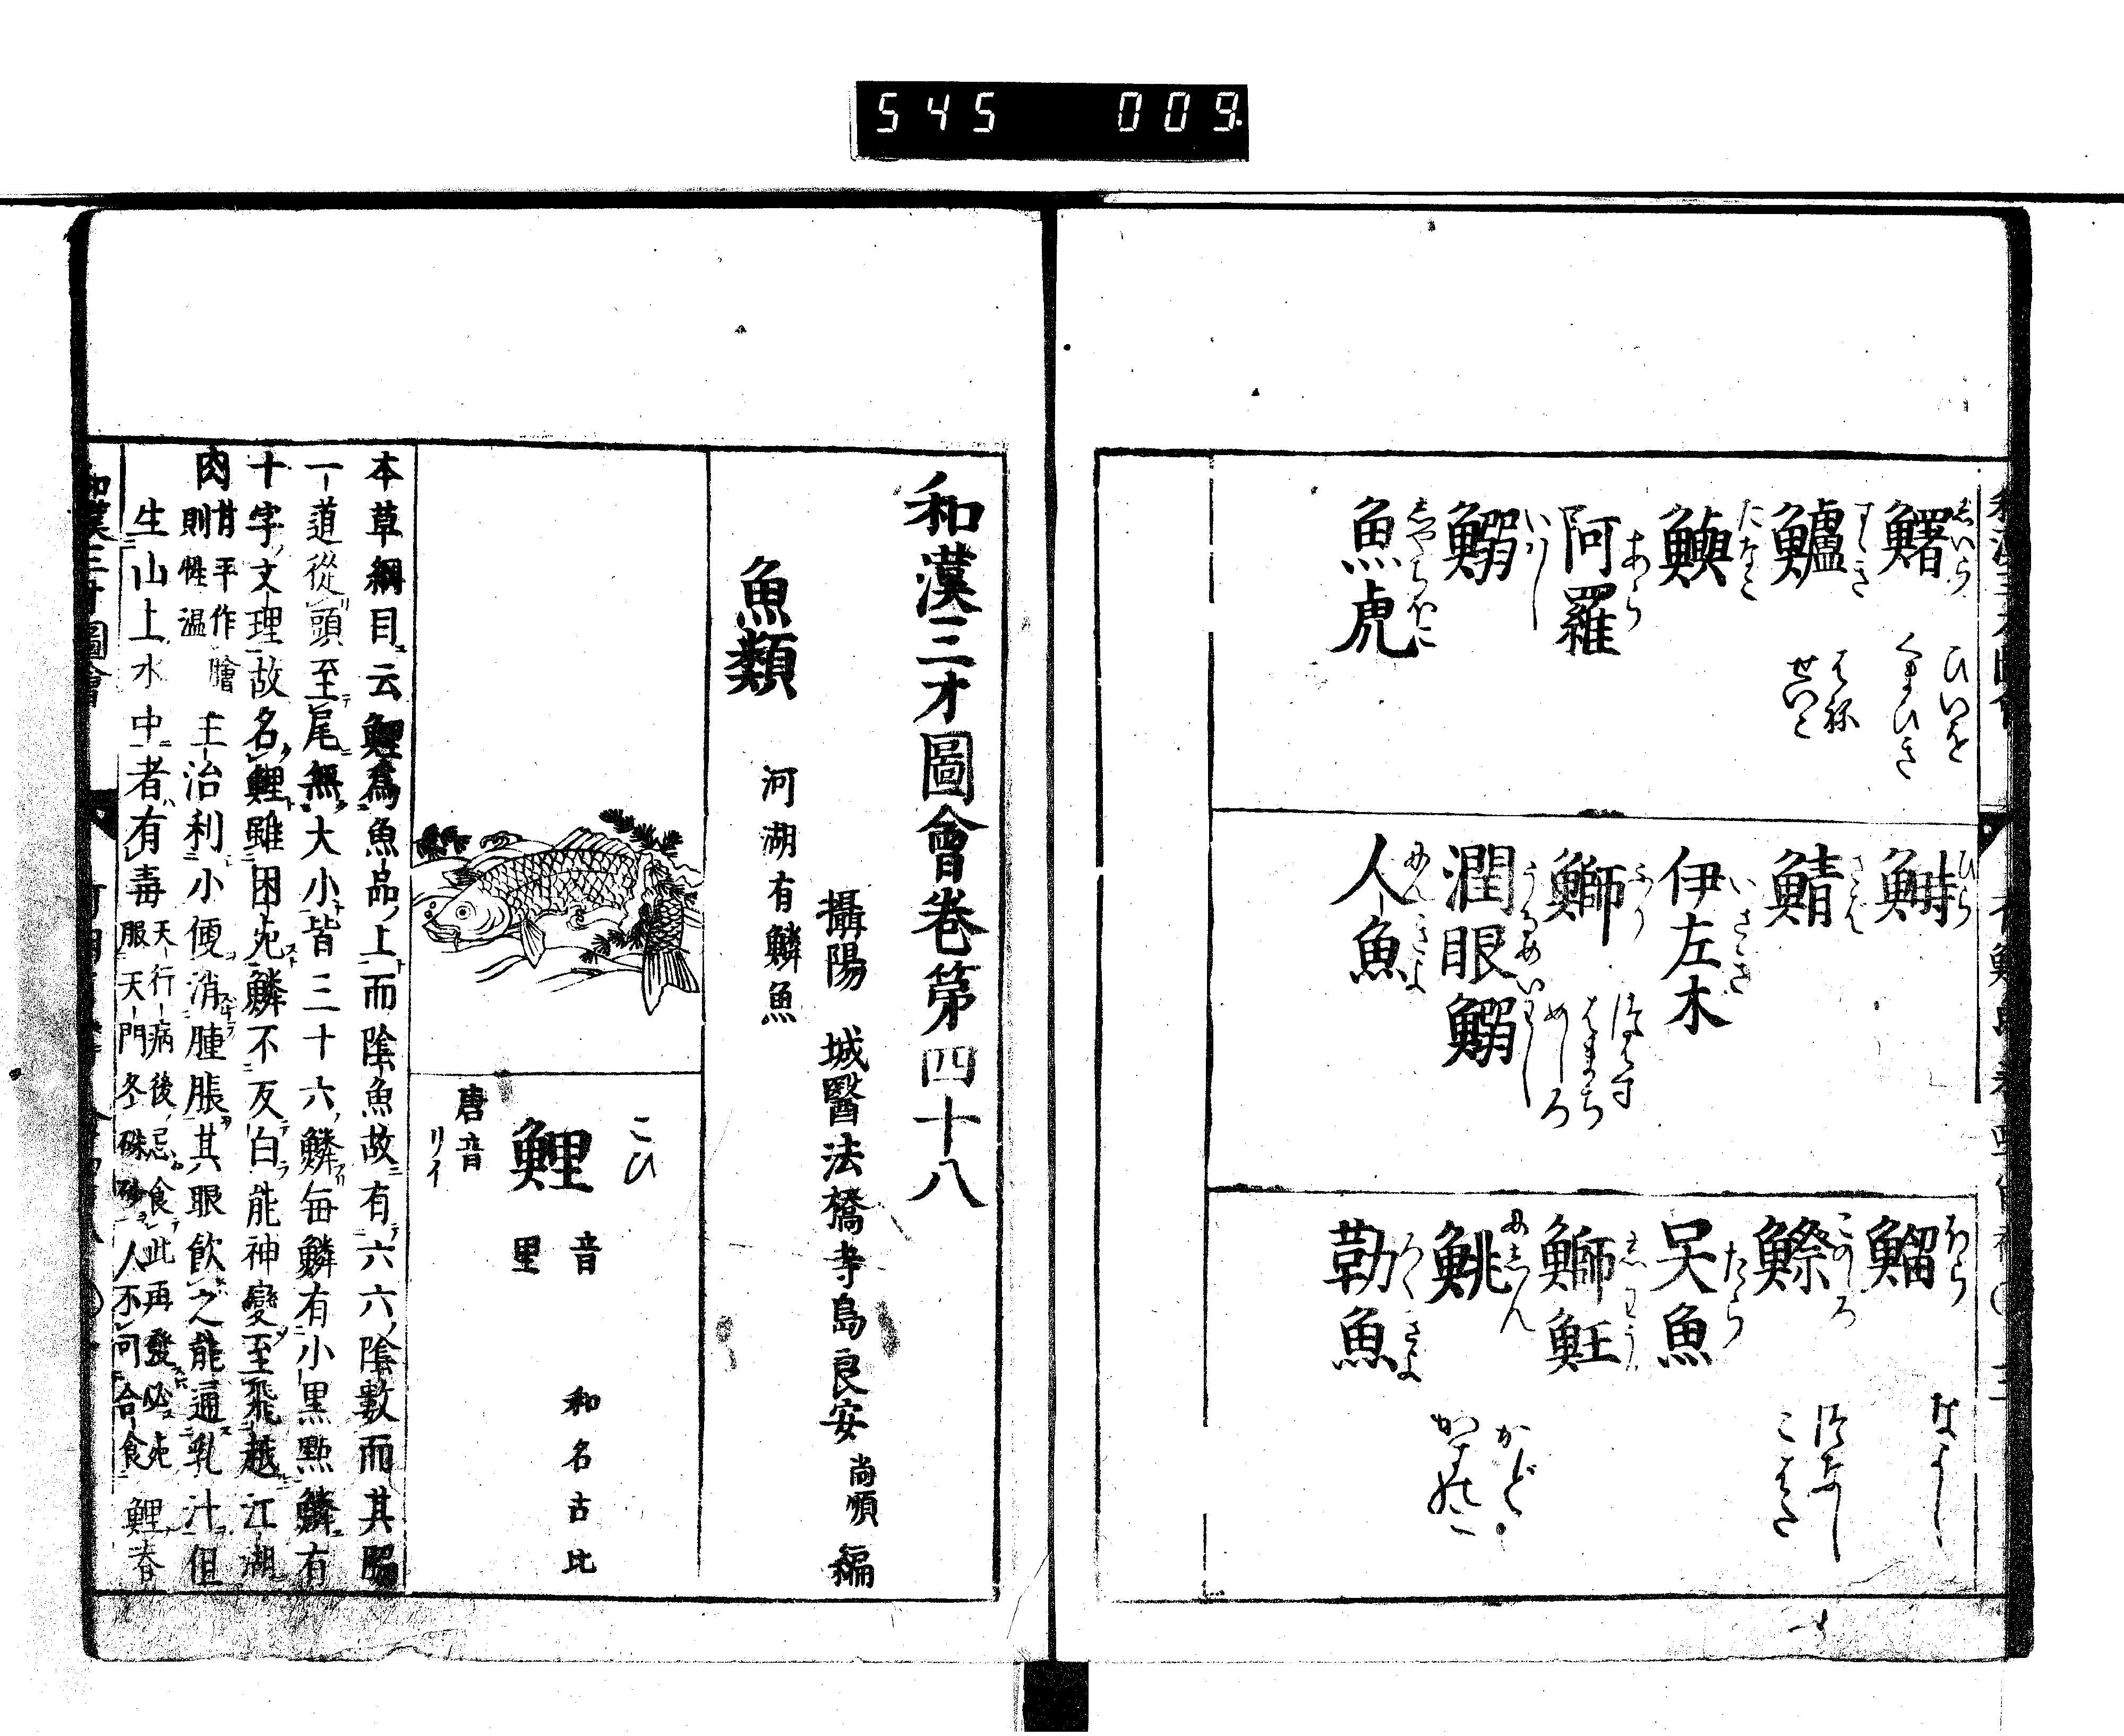 545 009
鱪 しいら ひいを くまひき
鱸 すゝき はね せいご
鱮 たなご
阿羅 あら
鰯 いわし
魚虎 しやちほこ
鰣 ひら
鯖 さば
伊左木 いさき
鰤 ぶり はまち めじろ
潤眼鰯 うるめいわし
人魚 にんぎよ
鰡 ぼら なよし
鰶 このしろ つなし こはだ
㕦魚 たら
鰤魟
鮡 かど かずのこ
勒魚 ろくぎよ
和漢三才圖會卷第四十八
攝陽 城醫法橋寺島良安尚順 編
魚類 河湖有鱗魚
こひ
鯉 音里 和名古比
唐音 リイ
本草綱目云鯉爲魚品上而陰魚故有六六陰數而其脇
一道從頭至尾無大小皆三十六鱗每鱗有小黑點鱗有
十字文理故名鯉雖困死鱗不反白能神變至飛越江湖
肉 甘平作鱠則性溫 主治利小便消腫脹其眼飮之能通乳汁但
生山上水中者有毒 天行病後忌食此再發必死 服天門冬硃砂人不可合食 鯉春
和漢三才圖會